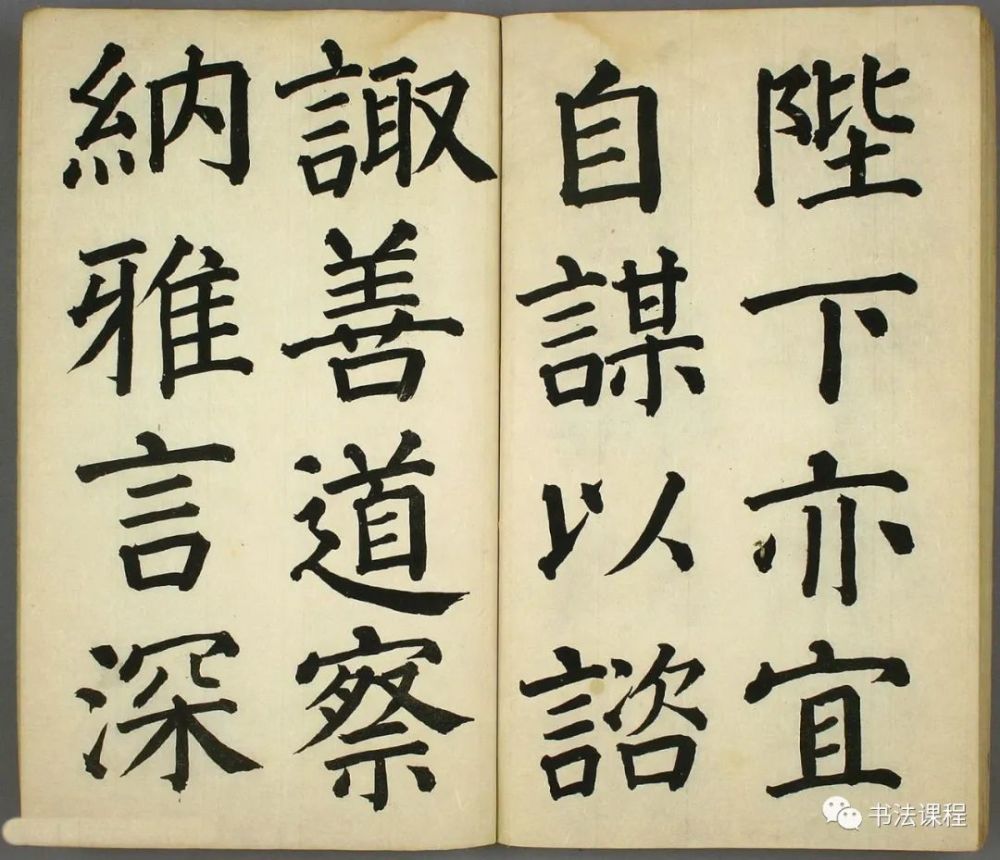 陛下亦宜
自謀以諮
諏善道察
納雅言深
书法课程